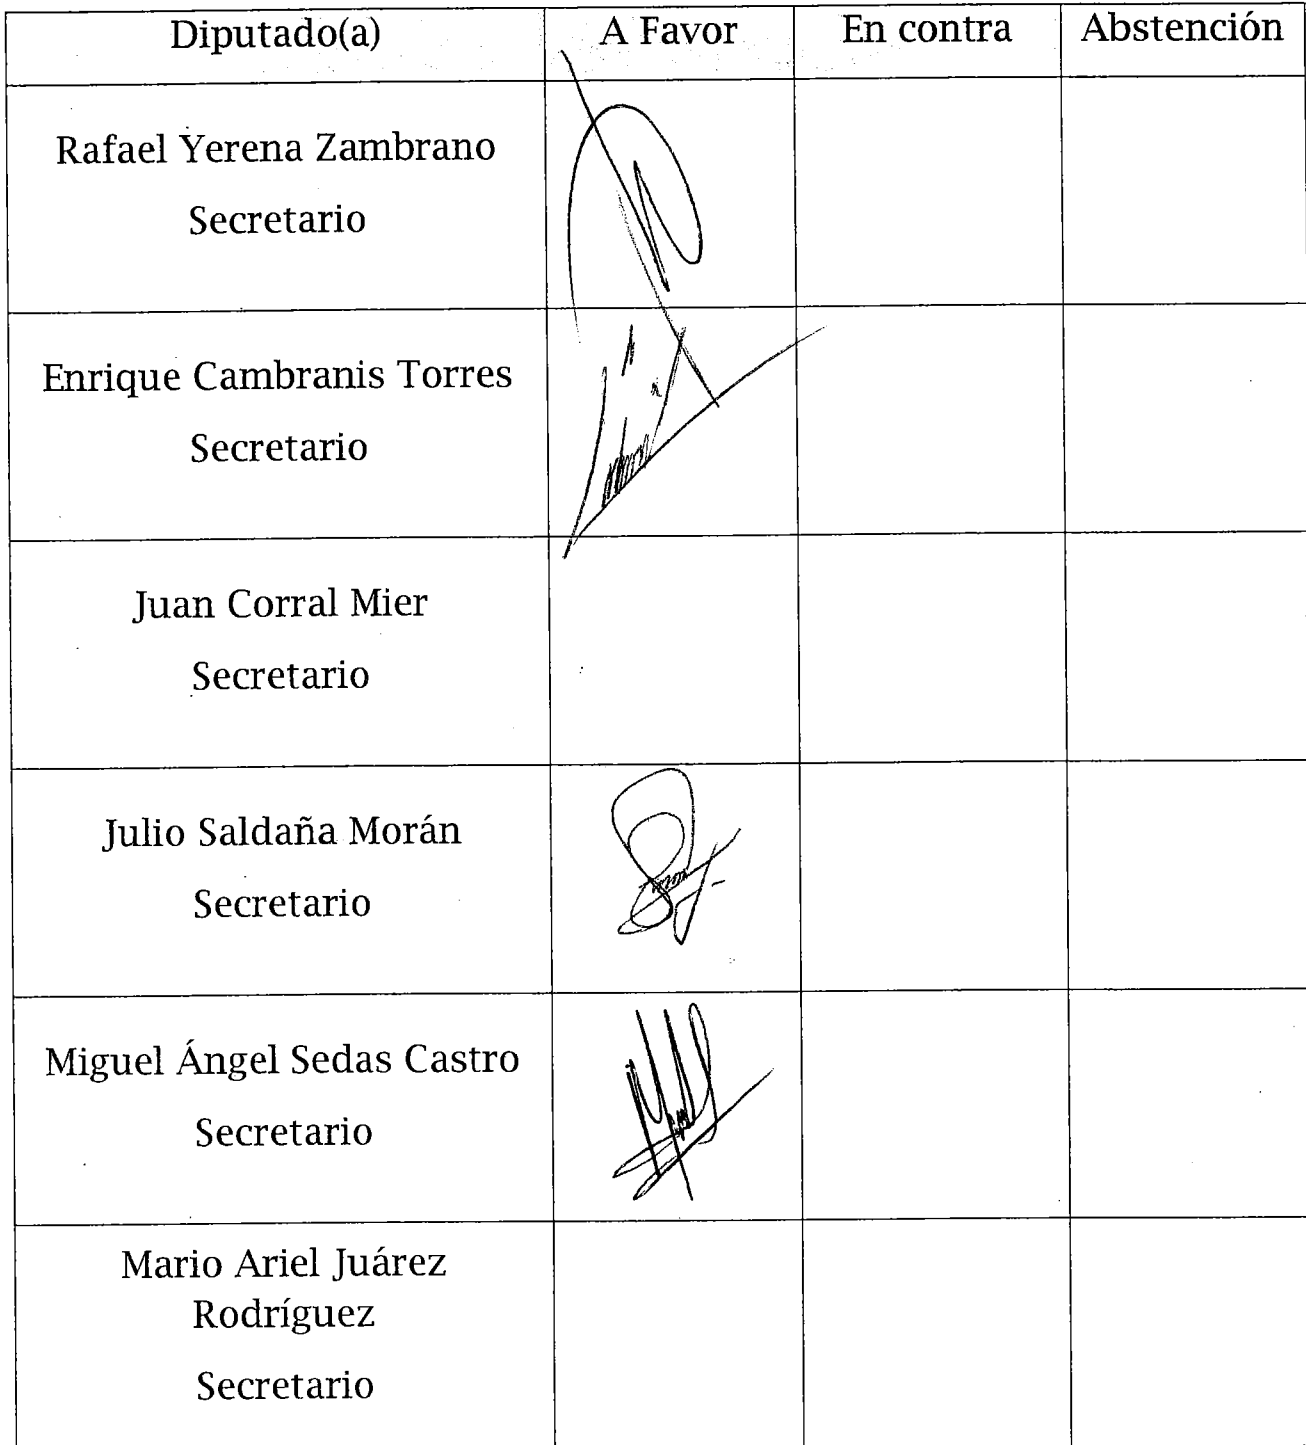 Diputado(a) A Favor En contra Abstención
Rafael Yerena Zambrano
Secretario
Enrique Cambranis Torres
Secretario
Juan Corral Mier
Secretario
Julio Saldaña Morán
Secretario
Miguel Ángel Sedas Castro
Secretario
Mario Ariel Juárez
Rodríguez
Secretario